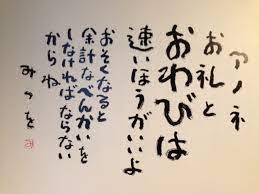 アノネ
お礼と
おわびは
速いほうがいいよ
おそくなると
余計なべんかいを
しなければならない
からね
みつを